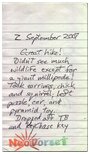 2 September 2007
Great hike!
Didn't see much
wildlife except for
a giant millipede!
Took earrings, chick
and squirrel, left
puzzle, car, and
pyramid toy.
Dropped off TB
and key